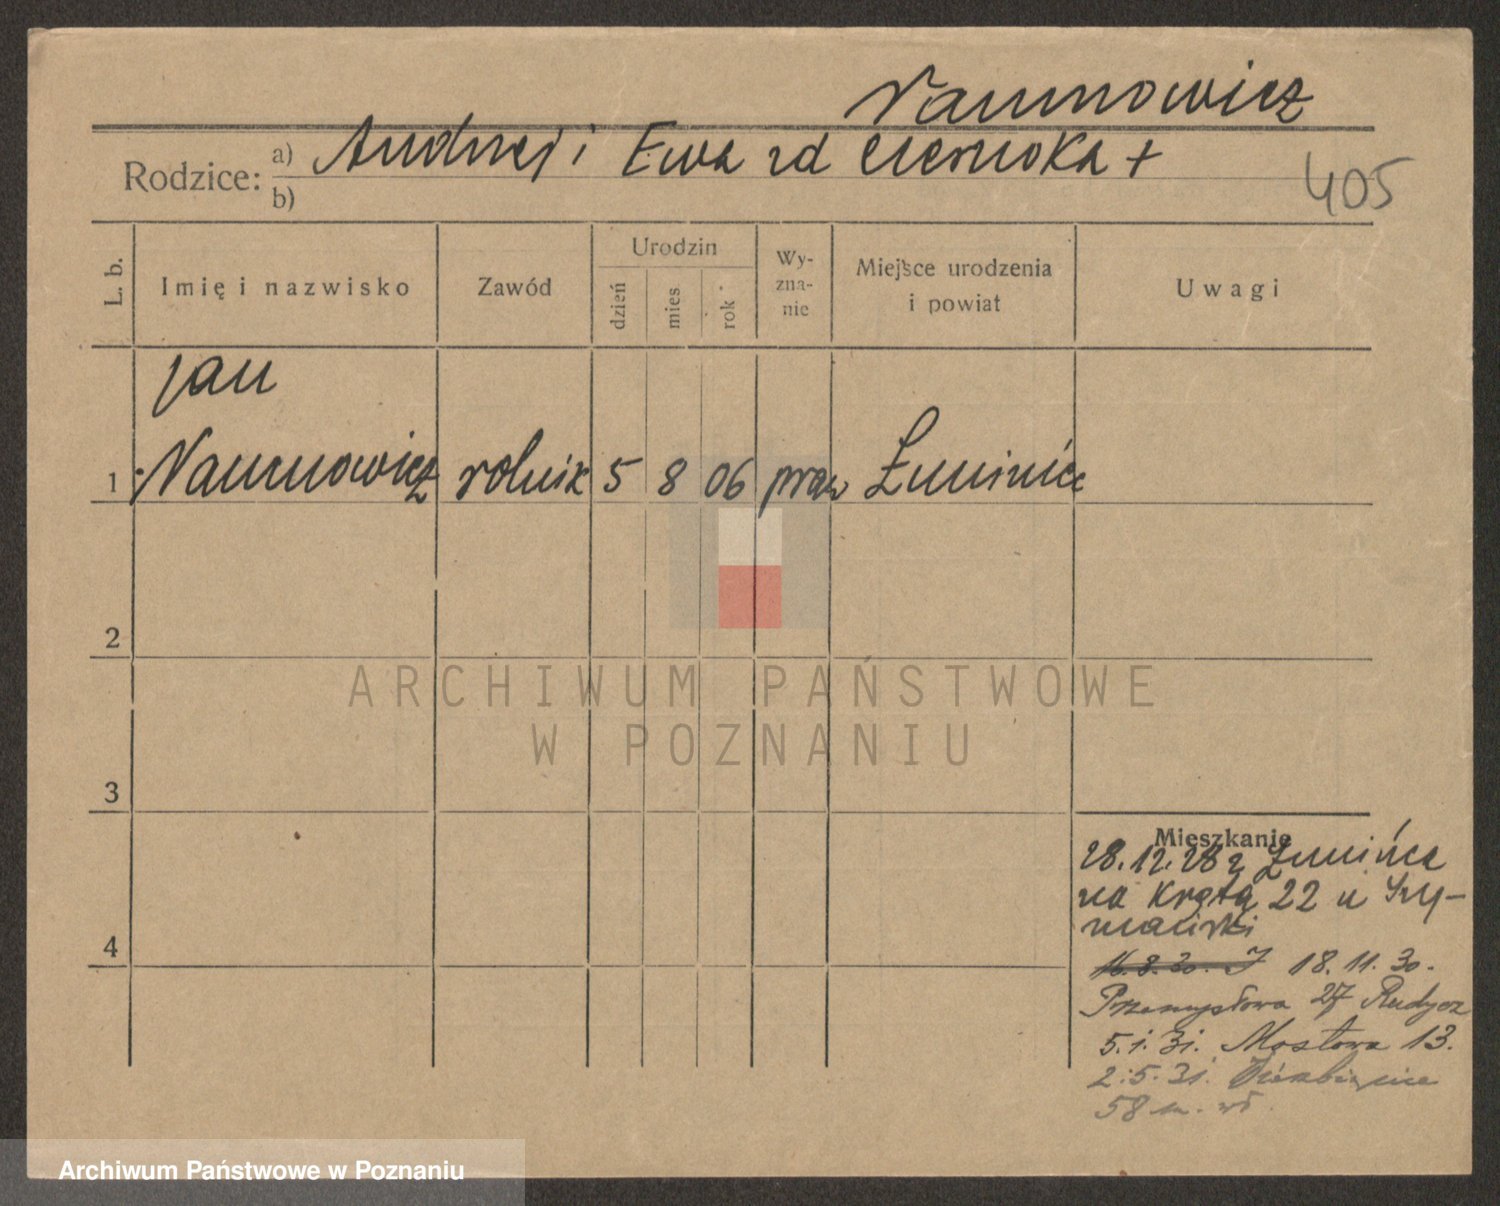 Naumowicz
Rodzice: a) Andrzej i Ewa zd +
b)
405
L. b.
Imię i nazwisko
Zawód
Urodzin
dzień
mies
rok
Wy-
zna-
nie
Miejsce urodzenia
i powiat
Uwagi
Jan
1 Naumowicz rolnik 5 8 06 praw
2
3
4
Mieszkanie
28.12.28 z
na Krętą 22 u Szy-
mański
16.8.30. 18.11.30.
Przemysłowa 27
5.1.31. Mostowa 13.
2.5.31.
58 m.
ARCHIWUM PAŃSTWOWE
W POZNANIU
Archiwum Państwowe w Poznaniu